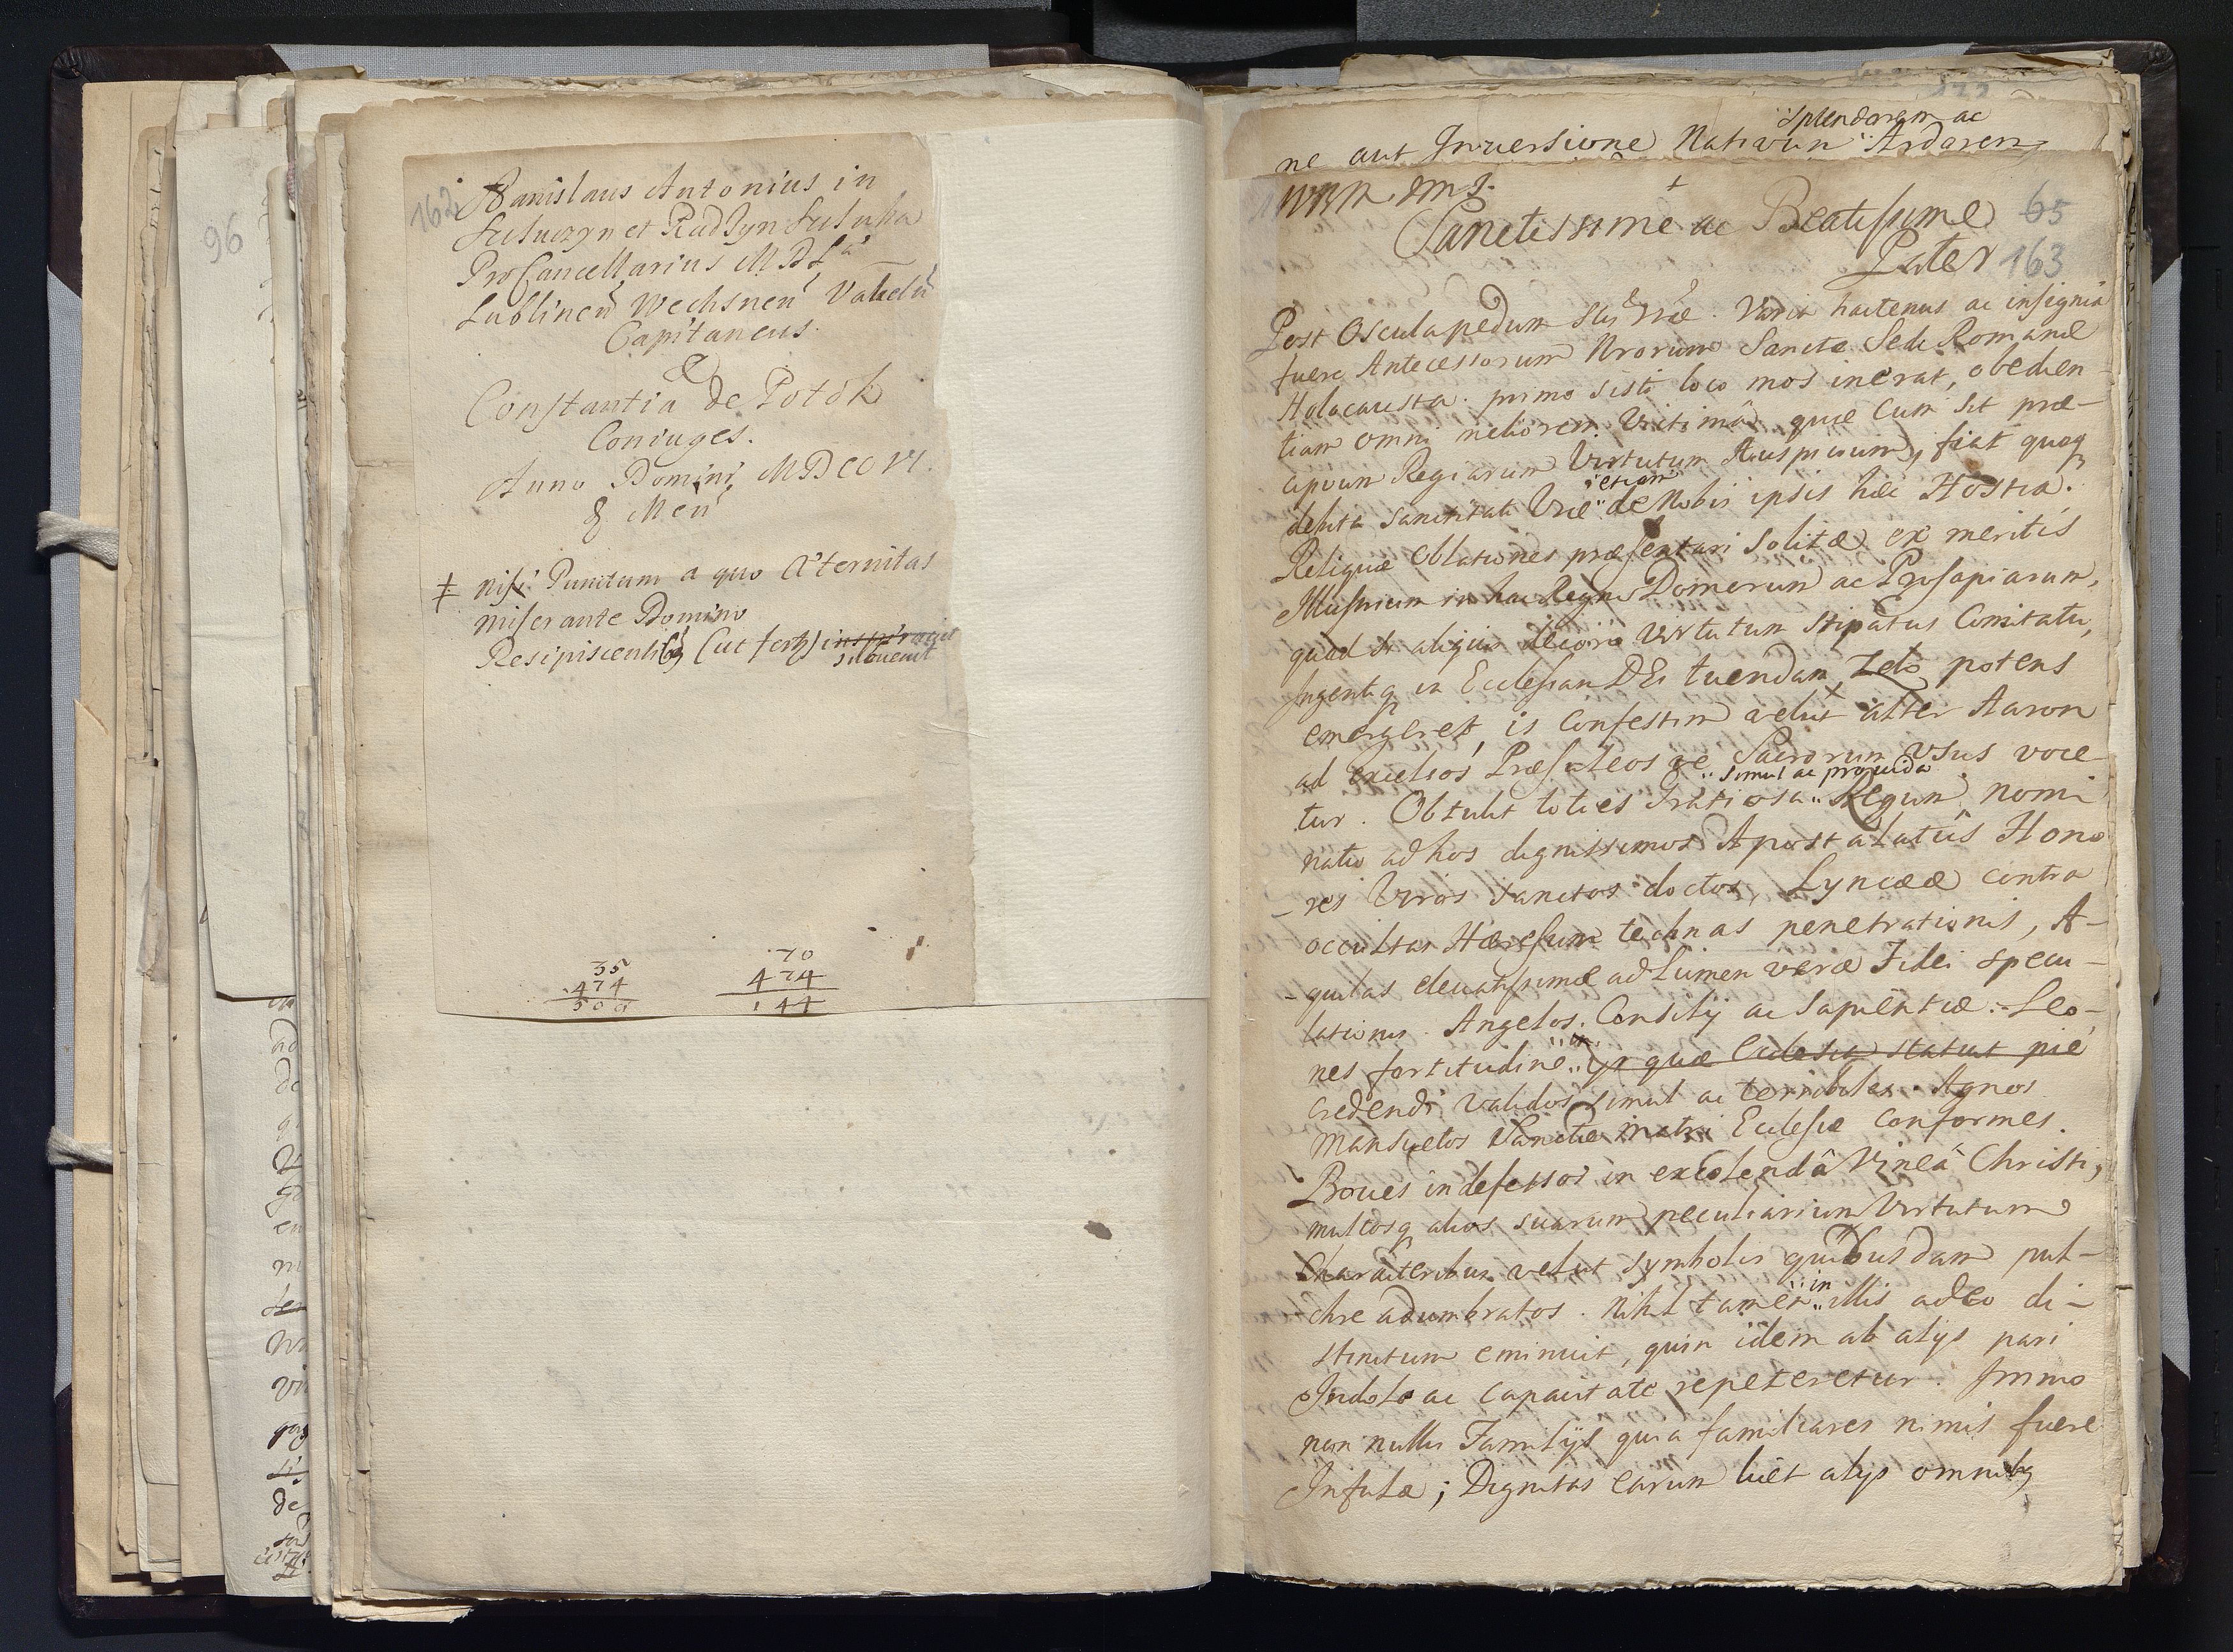 96
162
Stanislaus Antonius in
Szczuczyn et Radzyn Szczuka
ProCancellarius M D L
Lublinen Wechsnen
Capitaneus.
&
Constantia de Potok
Coniuges.
Anno Domini MDCCVI.
& Men
‡ nisi Punctum a quo Æternitas
miserante Domino
Resipiscentibq (ut fertq) inspiraciis
subvenit
35
474
509
70
474
144
Splendorem ac
ne aut Inversione Nativum Ardorem
Sanctissime ac Beatissime 65
Pater 163
Post Oscula pedum Stis Vræ. Varia hactenus ac insignia
fuere Antecessorum Nrorum Sanctæ Sedi Romanæ
Holocausta. primo sisti loco mos inerat, obedien-
tiam omni meliorem Victimâ quæ Cum sit præ-
cipuum Regiarum Virtutum Auspicium, fiat quoq
debita Sanctitati Vræ etiam de Nobis ipsis hæc Hostia.
Reliquæ Oblationes præsentari Solitæ ex meritis
Illustrium in hoc Regno Domorum ac Prosapiarum,
quod si aliquis decoro Virtutum Stipatus Comitatu,
Ingentiq in Ecclesiam DEi tuendam Zelo potens
emergeret, is Confestim velut alter Aaron
ad excelsos Præsuleos ac Sacrorum Usus voce-
tur. Obtulit toties Gratiosa simul ac provida Regum nomi
natio ad hos dignissimos Apostolatûs Hono
-res Viros Sanctos doctos, Lynceæ contra
occultas Hæresum technas penetrationis, A-
-quilas elevatissimæ ad Lumen veræ Fidei specu-
lationis. Angelos Consilÿ ac Sapientiæ. Leo-
nes fortitudine in quæ Ecclesia statuit pie
credendi validos simul ac terribiles. Agnos
Mansuetos Sanctæ Matri Ecclesiæ Conformes.
Boves indefessos in excolendâ Vineâ Christi,
multosq alios suarum peculiarium Virtutum
Characteribus velut Symbolis quibusdam pul-
chre adumbratos. Nihil tamen in illis adeo di-
stinctum eminuit, quin idem ab alÿs pari
Indole ac Capacitate repeteretur. Immo
non nullis Familÿs quia familiares nimis fuere
Infulæ; Dignitas earum licet alÿs omnibq